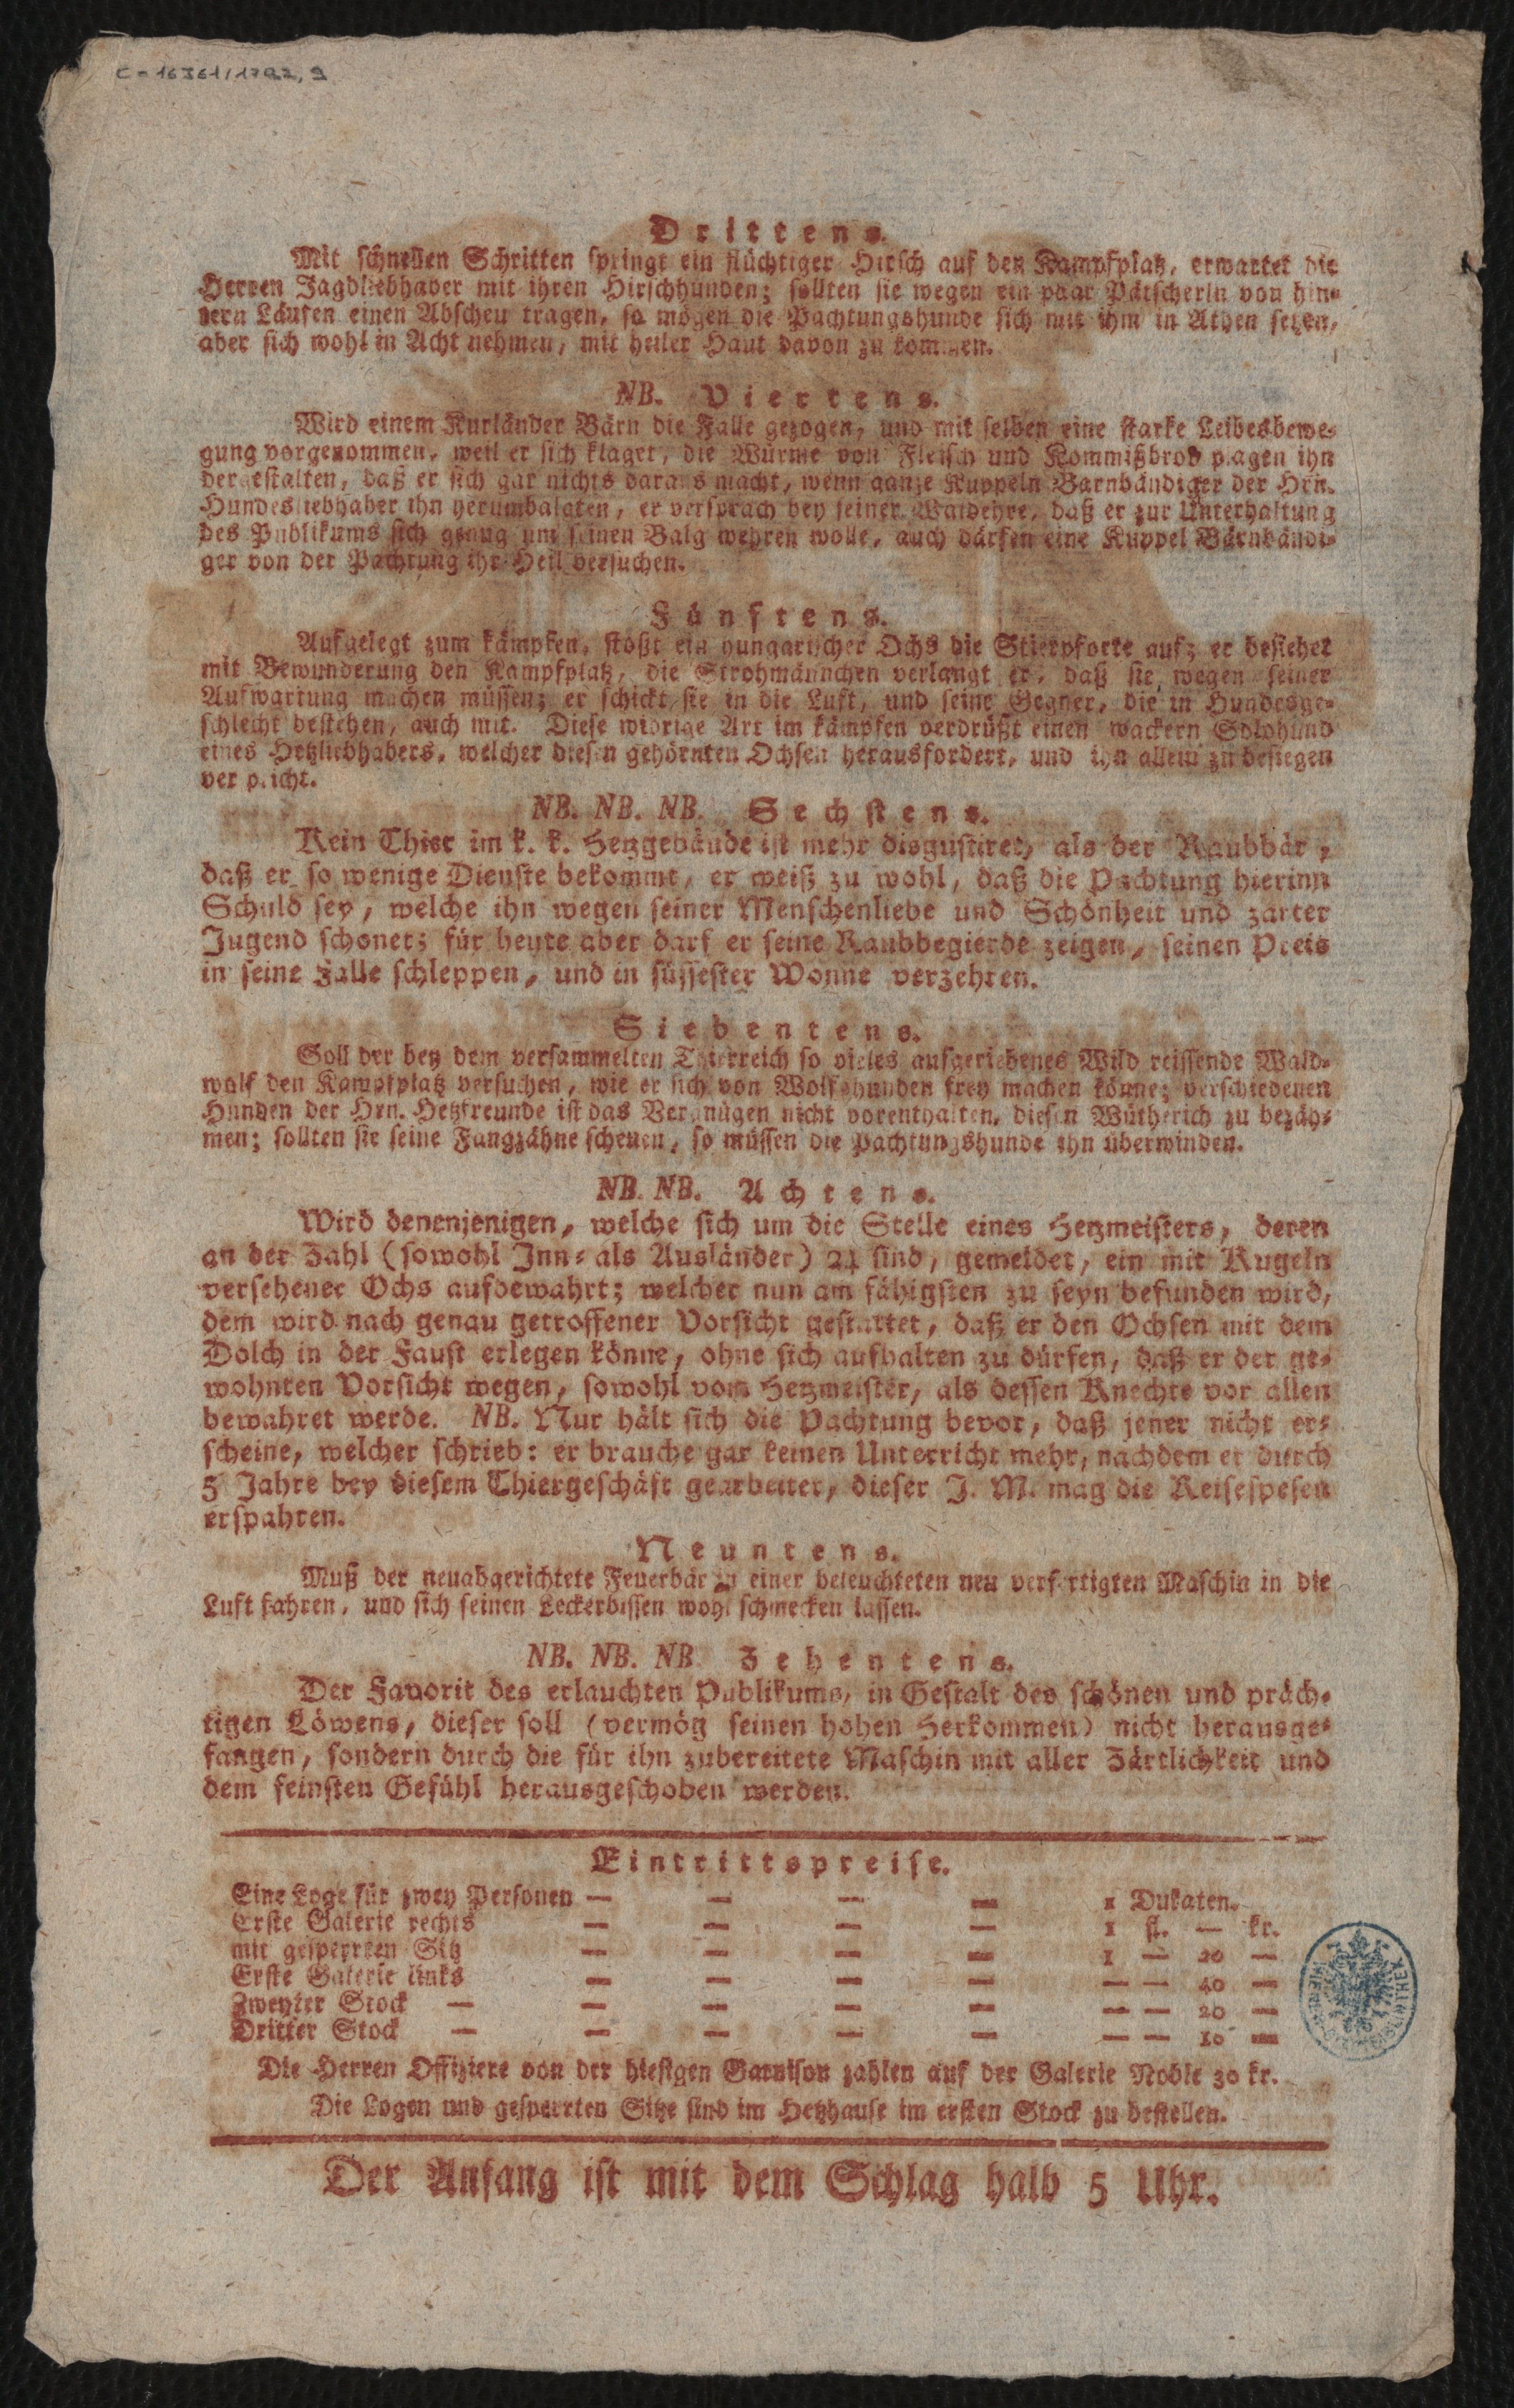 C-16361/1792,9
Drittens.
Mit schnellen Schritten springt ein flüchtiger Hirsch auf den Kampfplatz, erwartet die
Herren Jagdliebhaber mit ihren Hirschhunden; sollten sie wegen ein paar Pätscherln von hin-
tern Läufen einen Abscheu tragen, so mögen die Pachtungshunde sich mit ihm in Athen setzen,
aber sich wohl in Acht nehmen, mit heiler Haut davon zu kommen.
NB. Viertens.
Wird einem Kurländer Bärn die Falle gezogen, und mit selben eine starke Leibesbewe-
gung vorgenommen, weil er sich klaget, die Würme von Fleisch und Kommißbrod plagen ihn
dergestalten, daß er sich gar nichts daraus macht, wenn ganze Kuppeln Bärnbändiger der Hrn.
Hundesliebhaber ihn herumbalgten, er versprach bey seiner Waldehre, daß er zur Unterhaltung
des Publikums sich genug um seinen Balg wehren wolle, auch därfen eine Kuppel Bärnbändi-
ger von der Pachtung ihr Heil versuchen.
Fünftens.
Aufgelegt zum kämpfen, stoßt ein hungarischer Ochs die Stierpforte auf; er besiehet
mit Bewunderung den Kampfplatz, die Strohmännchen verlangt er, daß sie wegen seiner
Aufwartung machen müssen; er schickt sie in die Luft, und seine Gegner, die in Hundesge-
schlecht bestehen, auch mit. Diese widrige Art im kämpfen verdrüßt einen wackern Solohund
eines Hetzliebhabers, welcher diesen gehörnten Ochsen herausfordert, und ihn allein zu besiegen
verspricht.
NB. NB. NB. Sechstens.
Kein Thier im k. k. Hetzgebäude ist mehr disgustiret, als der Raubbär,
daß er so wenige Dienste bekommt, er weiß zu wohl, daß die Pachtung hierinn
Schuld sey, welche ihn wegen seiner Menschenliebe und Schönheit und zarter
Jugend schonet; für heute aber darf er seine Raubbegierde zeigen, seinen Preis
in seine Falle schleppen, und in süssester Wonne verzehren.
Siebentens.
Soll der bey dem versammelten Thierreich so vieles aufgeriebenes Wild reissende Wald-
wolf den Kampfplatz versuchen, wie er sich von Wolfshunden frey machen könne; verschiedenen
Hunden der Hrn. Hetzfreunde ist das Vergnügen nicht vorenthalten, diesen Wütherich zu bezäh-
men; sollten sie seine Fangzähne scheuen, so müssen die Pachtungshunde ihn überwinden.
NB. NB. Achtens.
Wird denenjenigen, welche sich um die Stelle eines Hetzmeisters, deren
an der Zahl (sowohl Inn- als Ausländer) 24 sind, gemeldet, ein mit Kugeln
versehener Ochs aufbewahrt; welcher nun am fähigsten zu seyn befunden wird,
dem wird nach genau getroffener Vorsicht gestattet, daß er den Ochsen mit dem
Dolch in der Faust erlegen könne, ohne sich aufhalten zu dürfen, daß er der ge-
wohnten Vorsicht wegen, sowohl vom Hetzmeister, als dessen Knechte vor allen
bewahret werde. NB. Nur hält sich die Pachtung bevor, daß jener nicht er-
scheine, welcher schrieb: er brauche gar keinen Unterricht mehr, nachdem er durch
5 Jahre bey diesem Thiergeschäft gearbeitet, dieser J. M. mag die Reisespesen
erspahren.
Neuntens.
Muß der neuabgerichtete Feuerbär in einer beleuchteten neu verfertigten Maschin in die
Luft fahren, und sich seinen Leckerbissen wohl schmecken lassen.
NB. NB. NB. Zehentens.
Der Favorit des erlauchten Publikums, in Gestalt des schönen und präch-
tigen Löwens, dieser soll (vermög seinen hohen Herkommen) nicht herausge-
fangen, sondern durch die für ihn zubereitete Maschin mit aller Zärtlichkeit und
dem feinsten Gefühl herausgeschoben werden.
Eintrittspreise.
Eine Loge für zwey Personen — — — — 1 Dukaten.
Erste Galerie rechts — — — — 1 fl. — kr.
mit gesperrten Sitz — — — — 1 — 20 —
Erste Galerie links — — — — — — 40 —
Zweyter Stock — — — — — — — 20 —
Dritter Stock — — — — — — — 10 —
Die Herren Offiziere von der hiesigen Garnison zahlen auf der Galerie Noble 30 kr.
Die Logen und gesperrten Sitze sind im Hetzhause im ersten Stock zu bestellen.
Der Anfang ist mit dem Schlag halb 5 Uhr.